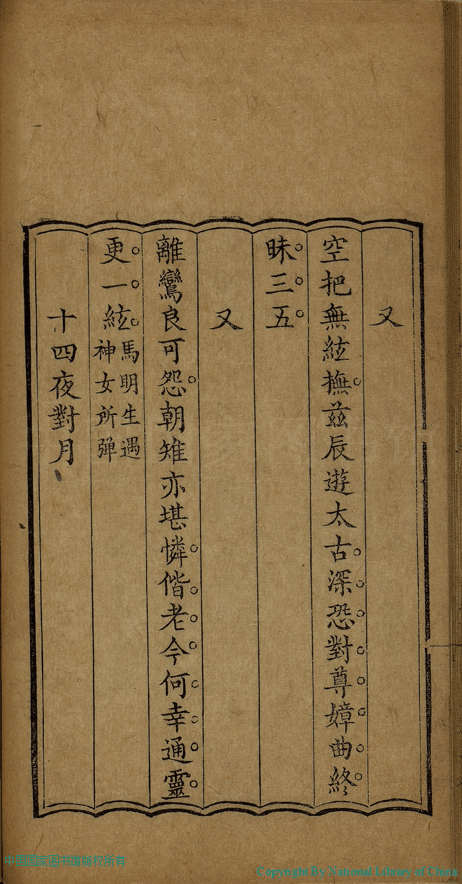 又
空把無絃撫茲辰遊太古深恐對尊嫜曲終
昧三五
又
離鸞良可怨朝雉亦堪憐偕老今何幸通靈
更一絃馬明生遇
神女所彈
十四夜對月
Copyright By National Library of China